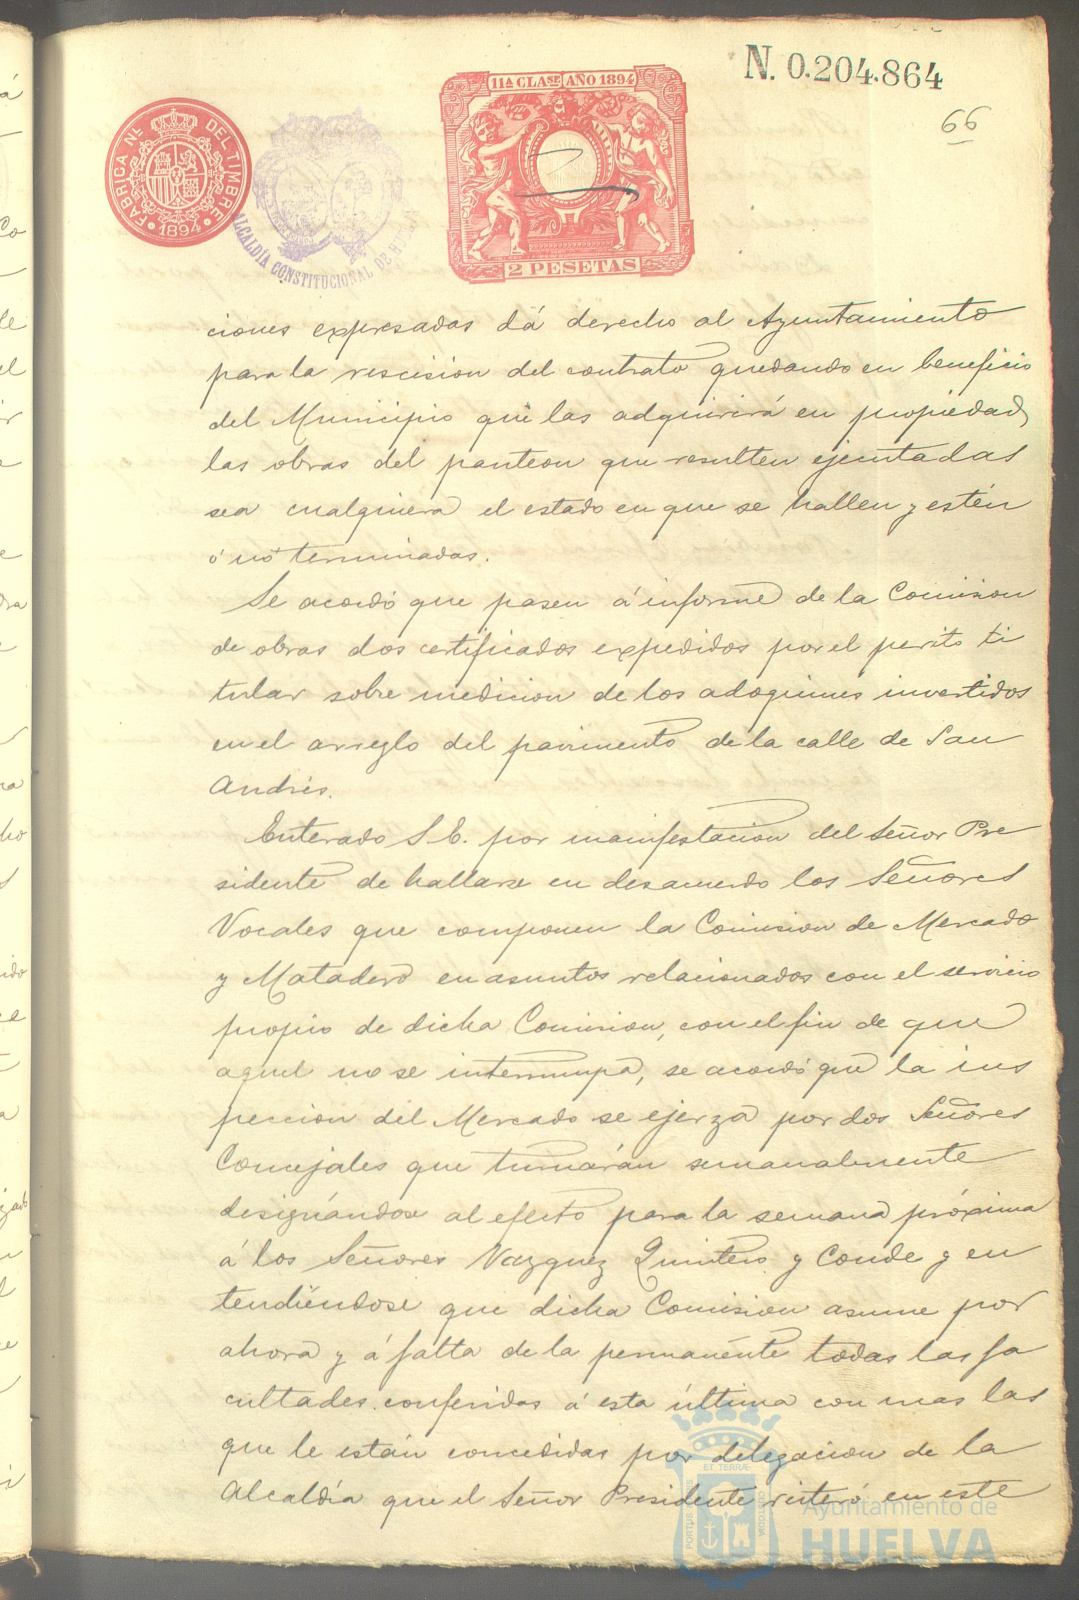 N. 0.204.864
66
11ª CLASE AÑO 1894
FABRICA Nᴸ DEL TIMBRE
1894
ALCALDÍA CONSTITUCIONAL DE HUELVA
2 PESETAS
ciones expresadas dá derecho al Ayuntamiento
para la rescision del contrato quedando en beneficio
del Municipio que las adquirirá en propiedad,
las obras del panteon que resulten ejecutadas
sea cualquiera el estado en que se hallen y estén
ó nó terminadas.
Se acordó que pasen á informe de la Comision
de obras dos certificados expedidos por el perito ti
tular sobre medicion de los adoquines invertidos
en el arreglo del pavimento de la calle de San
Andrés.
Enterado S. E. por manifestacion del Señor Pre
sidente de hallarse en desacuerdo los Señores
Vocales que componen la Comision de Mercado
y Matadero en asuntos relacionados con el servicio
propio de dicha Comision, con el fin de que
aquel no se interrumpa, se acordó que la ins
peccion del Mercado se ejerza por dos Señores
Concejales que turnarán semanalmente
designándose al efecto para la semana próxima
á los Señores Vazquez Quintero y Conde y en
tendiéndose que dicha Comision asume por
ahora y á falta de la permanente todas las fa
cultades conferidas á esta última con mas las
que le están concedidas por delegacion de la
Alcaldía que el Señor Presidente reiteró en este
PORTUS MARIS ET TERRÆ CUSTODIA
Ayuntamiento de
HUELVA